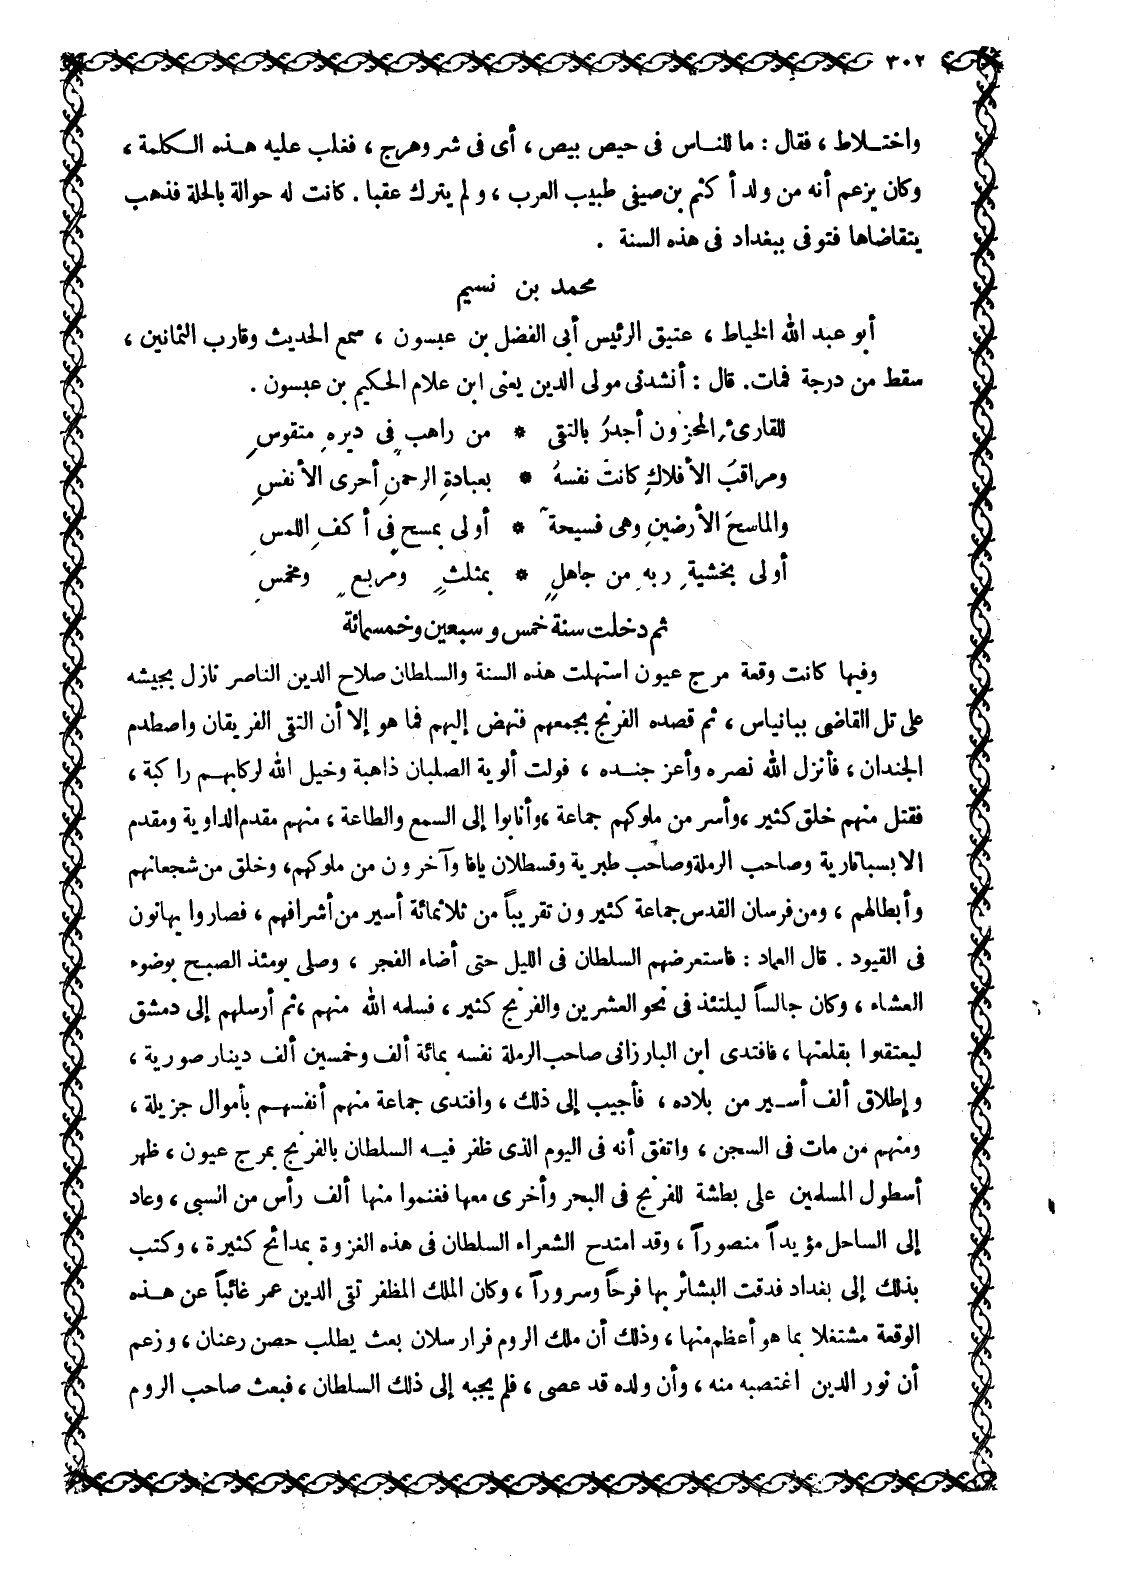 ٣٠٢
واختـلاط ، فقال : ما للنـاس فى حيص بيص ، أى فى شر وهرج ، فغلب عليه هـذه الـكلمة ،
وكان يزعم أنه من ولد أكثم بن صيفى طبيب العرب ، ولم يترك عقبا . كانت له حوالة بالحلة فذهب
يتقاضاها فتوفى ببغداد فى هذه السنة .
محمد بن نسيم
أبو عبد الله الخياط ، عتيق الرئيس أبى الفضل بن عبسون ، سمع الحديث وقارب الثمانين ،
سقط من درجة فمات. قال : أنشدنى مولى الدين يعنى ابن علام الحكيم بن عبسون .
للقارئ المحزون أجدرُ بالتقى * من راهبٍ فى ديرهِ متقوسِ
ومراقبُ الأفلاكِ كانت نفسهُ * بعبادةِ الرحمنِ أحرى الأنفسِ
والماسحُ الأرضينِ وهى فسيحة * أولى بمسحٍ فى أكفِ اللمسِ
أولى بخشيةِ ربهِ من جاهلٍ * بمثلثٍ ومربعٍ ومخمسِ
ثم دخلت سنة خمس وسبعين وخمسمائة
وفيها كانت وقعة مرج عيون استهلت هذه السنة والسلطان صلاح الدين الناصر نازل بجيشه
على تل القاضى ببانياس ، ثم قصده الفرنج بجمعهم فنهض إليهم فما هو إلا أن التقى الفريقان واصطدم
الجندان ، فأنزل الله نصره وأعز جنـده ، فولت ألوية الصلبان ذاهبة وخيل الله لركابهـم راكبة ،
فقتل منهم خلق كثير ، وأسر من ملوكهم جماعة ، وأنابوا إلى السمع والطاعة ، منهم مقدم الداوية ومقدم
الابسباتارية وصاحب الرملة وصاحب طبرية وقسطلان يافا وآخرون من ملوكهم، وخلق من شجعانهم
وأبطالهم ، ومن فرسان القدس جماعة كثيرون تقريباً من ثلاثمائة أسير من أشرافهم ، فصاروا يهانون
فى القيود . قال العماد : فاستعرضهم السلطان فى الليل حتى أضاء الفجر ، وصلى يومئذ الصبح بوضوء
العشاء ، وكان جالساً ليلتئذ فى نحو العشرين والفرنج كثير ، فسلمه الله منهم ، ثم أرسلهم إلى دمشق
ليعتقلوا بقلعتها ، فافتدى ابن البارزانى صاحب الرملة نفسه بمائة ألف وخمسين ألف دينار صورية ،
وإطلاق ألف أسـير من بلاده ، فأجيب إلى ذلك ، وافتدى جماعة منهم أنفسهـم بأموال جزيلة ،
ومنهم من مات فى السجن ، واتفق أنه فى اليوم الذى ظفر فيـه السلطان بالفرنج بمرج عيون ، ظهر
أسطول المسلمين على بطشة للفرنج فى البحر وأخرى معها فغنموا منها ألف رأس من السبى ، وعاد
إلى الساحل مؤيداً منصوراً ، وقد امتدح الشعراء السلطان فى هذه الغزوة بمدائح كثيرة ، وكتب
بذلك إلى بغداد فدقت البشائر بها فرحاً وسروراً ، وكان الملك المظفر تقى الدين عمر غائباً عن هـذه
الوقعة مشتغلا بما هو أعظم منها ، وذلك أن ملك الروم فرارسلان بعث يطلب حصن رعنان ، وزعم
أن نور الدين اغتصبه منه ، وأن ولده قد عصى ، فلم يجبه إلى ذلك السلطان ، فبعث صاحب الروم